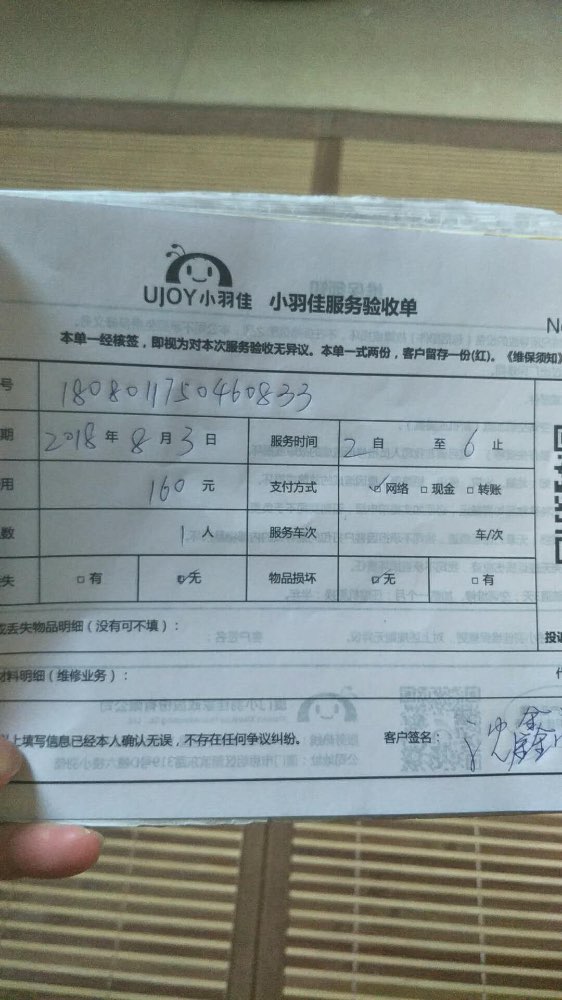 UJOY小羽佳 小羽佳服务验收单
N
本单一经核签，即视为对本次服务验收无异议。本单一式两份，客户留存一份(红)。《维保须知》
号 180801175046083 3
期 2018 年 8 月 3 日 服务时间 2 自 至 6 止
用 160 元 支付方式 ☑网络 □现金 □转账
数 1 人 服务车次 车/次
失 □有 ☑无 物品损坏 ☑无 □有
或丢失物品明细（没有可不填）： 投诉
材料明细（维修业务）：
以上填写信息已经本人确认无误，不存在任何争议纠纷。 客户签名：